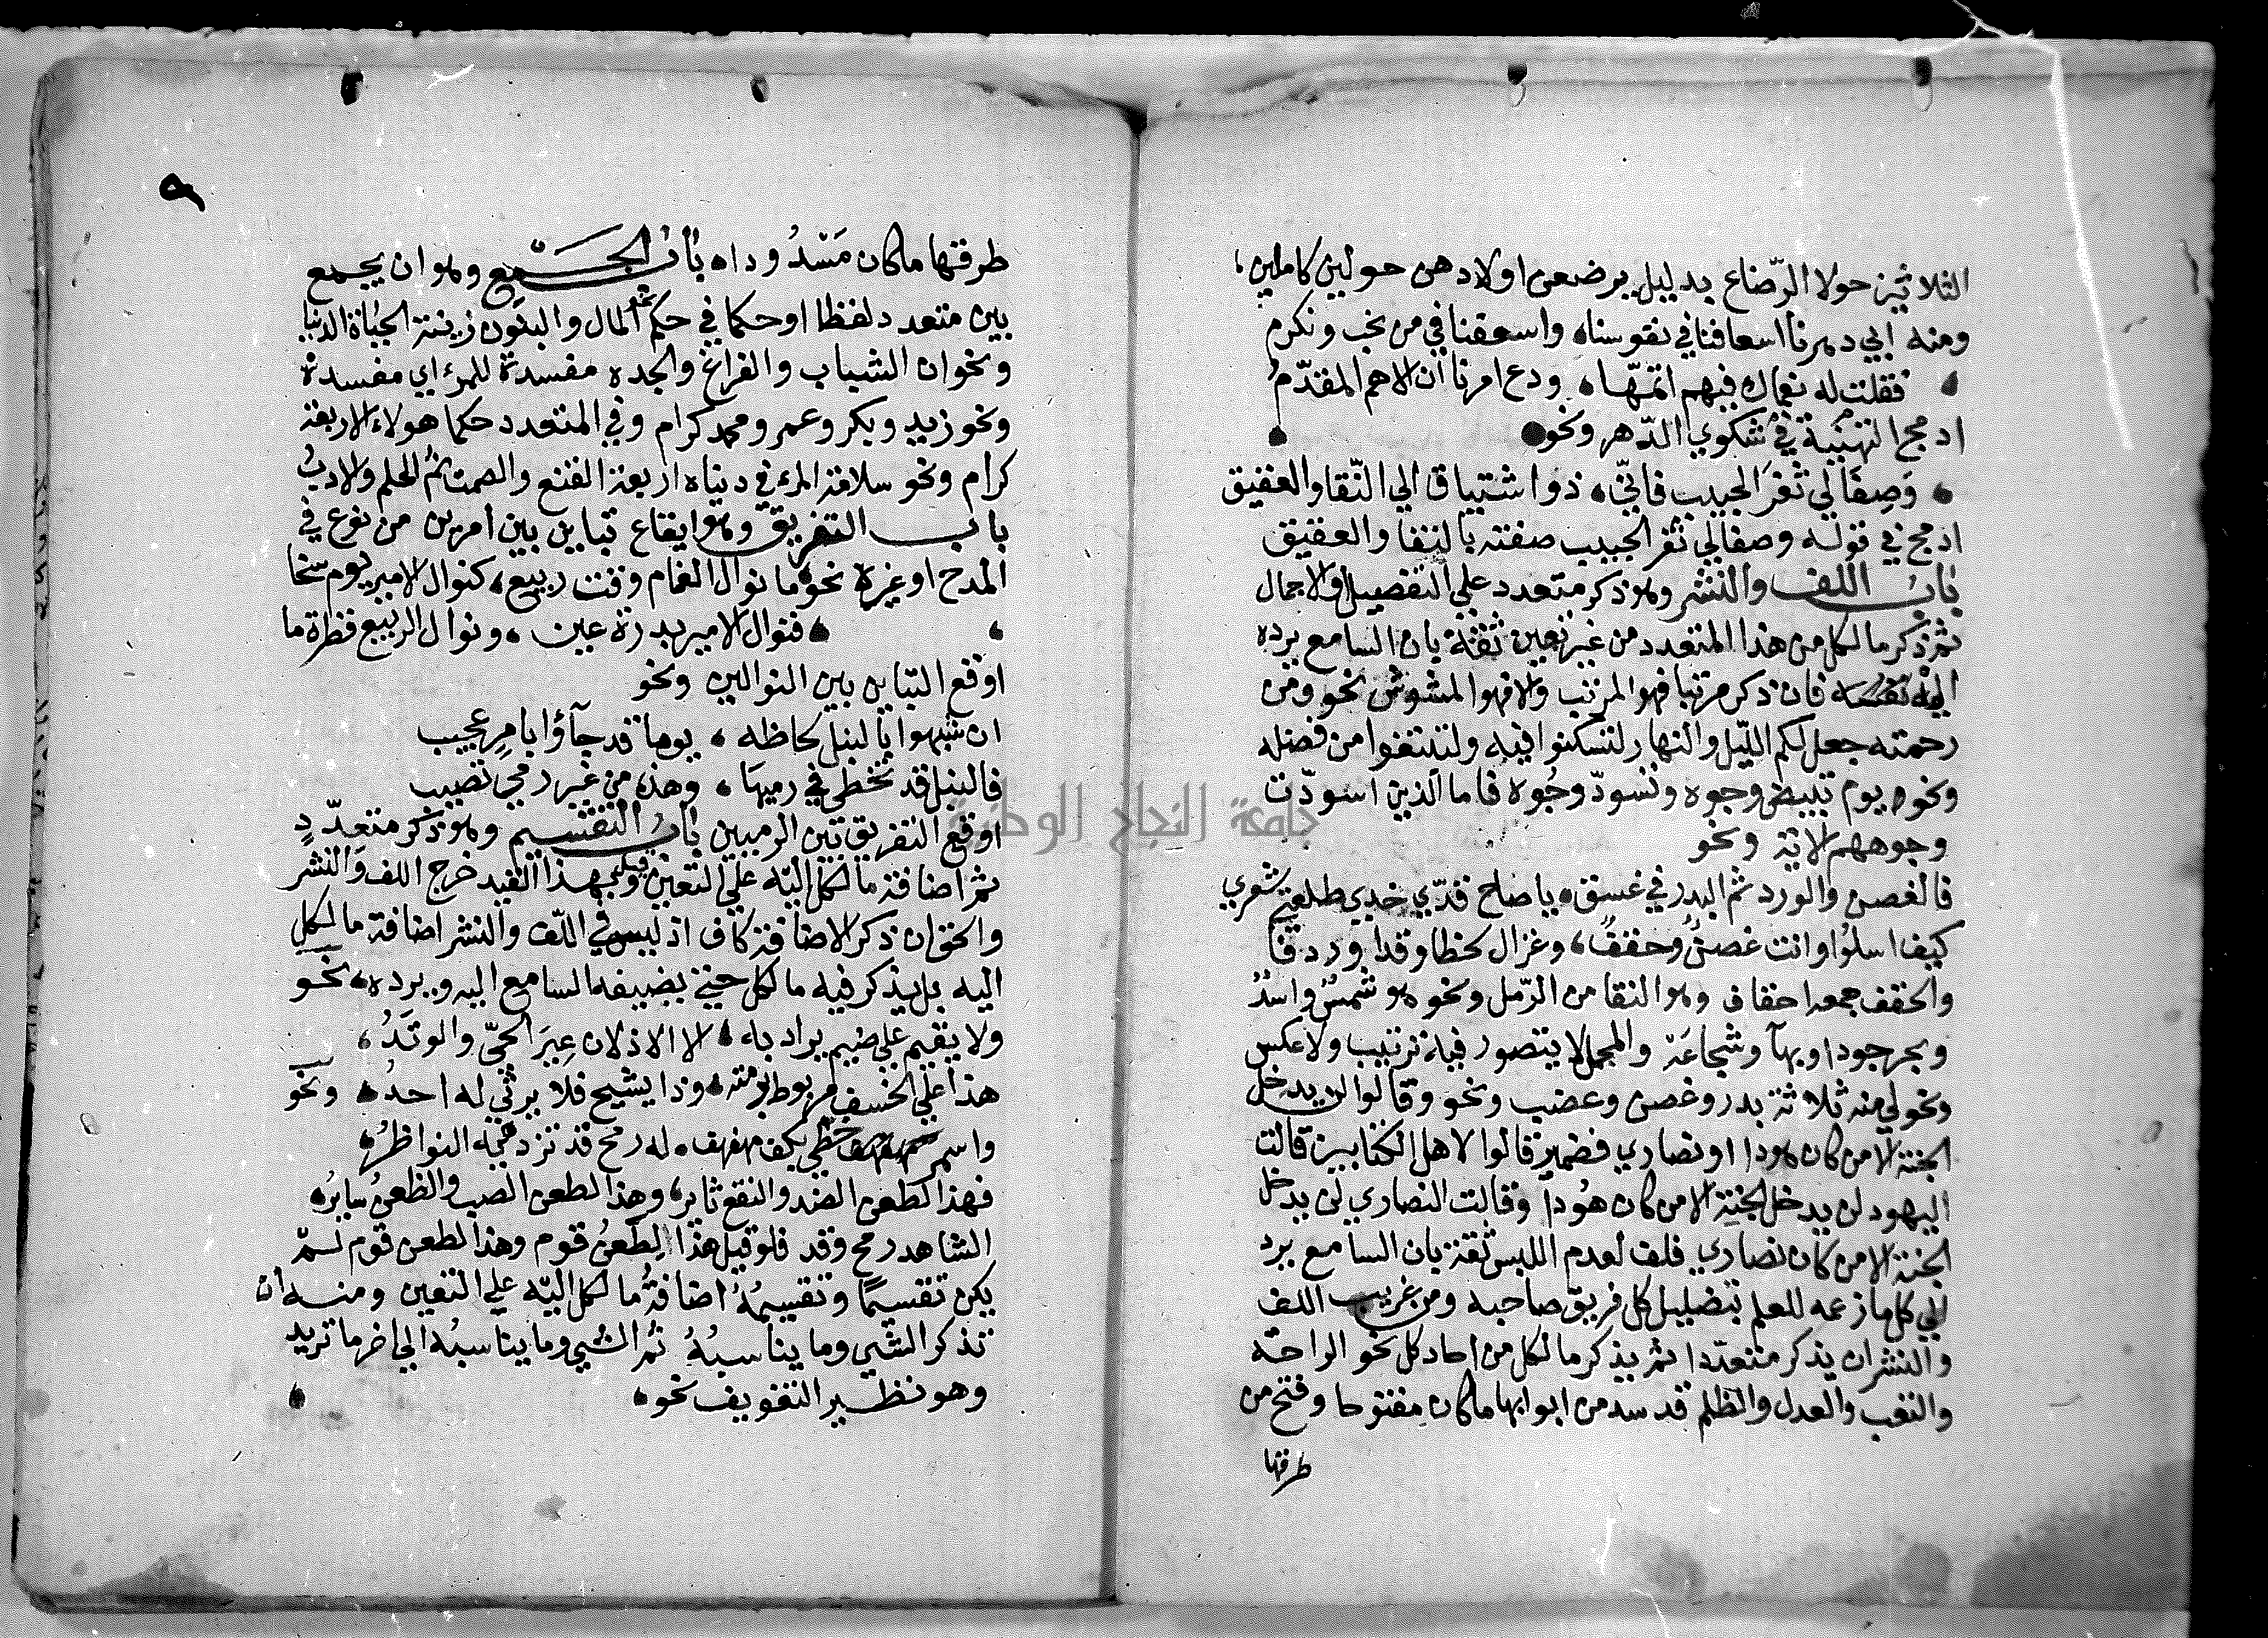 الثلاثين حولا الرّضاع بدليل يرضعن اولادهن حولين كاملين
ومنه ابي دهرنا اسعافنا في نفوسناه واسعفنا في من نحب ونكرم
فقلت له نعماك فيهم اتمّها ودع امرنا ان الاهم المقدّم
ادمج التهنية في شكوي الدّهر ونحو
وَصِفَا لي ثغرَ الحبيب فانّي ذو اشتياق الي النّقا والعقيق
ادمج في قوله وصفا لي ثغر الحبيب صفته بالنقا والعقيق
باب اللف والنشر وهو ذكر متعدد علي التفصيل او الاجمال
ثم ذكر ما لكل من هذا المتعدد من غير تعيين ثقة بان السامع يرده
اليه فان ذكر مرتبا فهو المرتب والا فهو المشوش نحو ومن
رحمته جعل لكم اللّيل والنهار لتسكنوا فيه ولتبتغوا من فضله
ونحو يوم تبيض وجوه وتسودّ وجُوه فاما الّذين اسودّت
وجوههم الاية ونحو
فالغصن والورد ثم البدر في غسق يا صاح قدّي خدي طلعتي شعري
كيف اسلُوا وانت غصنٌ وحقفٌ وغزال لحظا وقدا وردفا
والحقف جمعه احقاف وهو النقا من الرّمل ونحو هو شمسٌ واسدٌ
وبحر جودا وبهآ وشجاعَة والمجمل لا يتصور فيه ترتيب ولا عكس
ونحو لي منه ثلاثة بدر وغصن وعضب ونحو وقالوا لن يدخل
الجنة الا من كان هودا او نصاري فضمير قالوا لاهل الكتابين قالت
اليهود لن يدخل الجنة الا من كان هُوداً وقالت النصاري لن يدخل
الجنة الا من كان نصاري فلف لعدم اللبس ثقة بان السامع يرد
الي كل ما زعمه للعلم بتضليل كل فريق صاحبه ومن غريب اللف
والنشر ان يذكر متعدّدا ثم يذكر ما لكل من احاد كل نحو الراحة
والتعب والعدل والظلم قد سد من ابوابها ما كان مفتوحا وفتح من
طرقها
٩
طرقها ما كان مَسْدُوداه باب الجَمْع وهو ان يجمع
بين متعدد لفظا او حكما في حكم نحو المال والبنون زينة الحياة الدنيا
ونحو ان الشباب والفراغ والجده مفسدة للمرء اي مفسدة
ونحو زيد وبكر وعمر ومحمد كرام وفي المتعدد حكما هولاء الاربعة
كرام ونحو سلامة المرء في دنياه اربعة القنع والصمت ثم الحلم والادبُ
باب التفريق وهو ايقاع تباين بين امرين من نوع في
المدح او غيره نحو ما نوال الغمام وقت ربيع كنوال الامير يوم سخا
فنوال الامير بدرة عين ونوال الربيع قطرة ما
اوقع التباين بين النوالين ونحو
ان شبهوا بالنبل لحاظه يوما قد جآؤا بامرٍ عجيب
فالنبل قد تخطي في رميهَا وهذه من غير رمي تصيب
اوقع التفريق بين الرميين باب التقسيم وهو ذكر متعدّدٍ
ثم اضافة ما لكل اليه علي التعيين قيل وبهذا القيد خرج اللف والنشر
والحق ان ذكر الاضافة كاف اذ ليس في اللّف والنشر اضافة ما لكل
اليه بل يذكر فيه ما لكل حتي يضيفه السامع اليه ويرده نحو
ولا يقيم علي ضيم يراد به الا الاذلان عِيرَ الحيّ والوتَدُ
هذا علي الخسف مربوط برمته وذا يشيح فلا يرثي له احدُ ونحو
واسمر خطي بكف مهفهف له رمح قد تزدهيه النواظر
فهذا لطعن الضد والنقع ثاير وهذا لطعن الصب والظعنُ سايرُ
الشاهد رمح وقد فلو قيل هذا لطعن قوم وهذا لطعن قوم لمْ
يكن تقسيمًا وتقسيمُهُ اضافةُ ما لكل اليّه علي التعيين ومنه ان
تذكر الشي وما يناسبُهُ ثم الشي وما يناسبُه الي اخر ما تريد
وهو نظير التفويف نحو
جامعة النجاح الوطنية